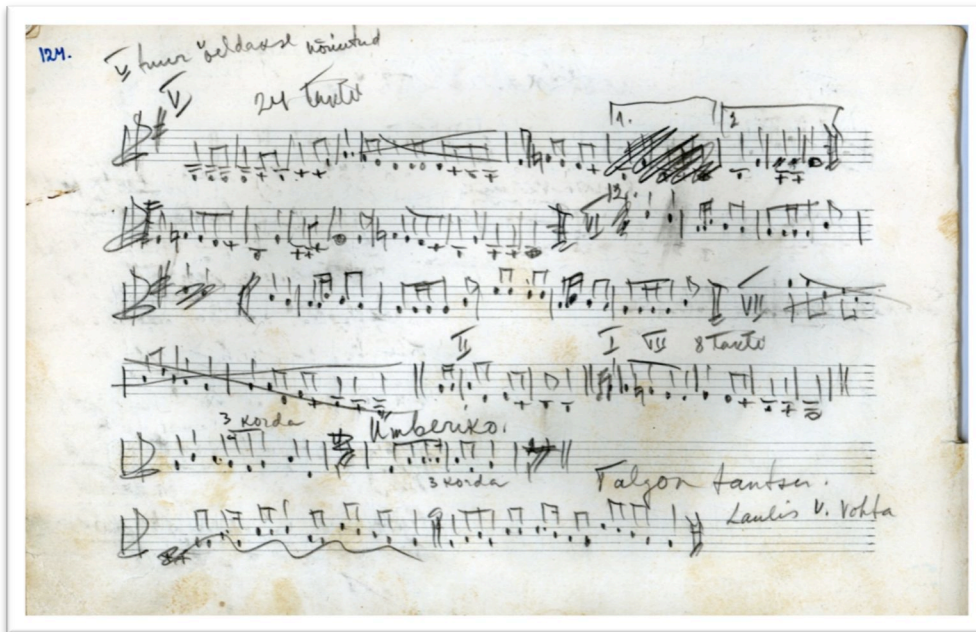 127.
V tuur öeldakse
V 24 takti
1. 2
VI 12.
VII
II I VII 8 takti
3 korda Ümberiko.
3 korda
Talgon tantsu.
Laulis V. Vohta